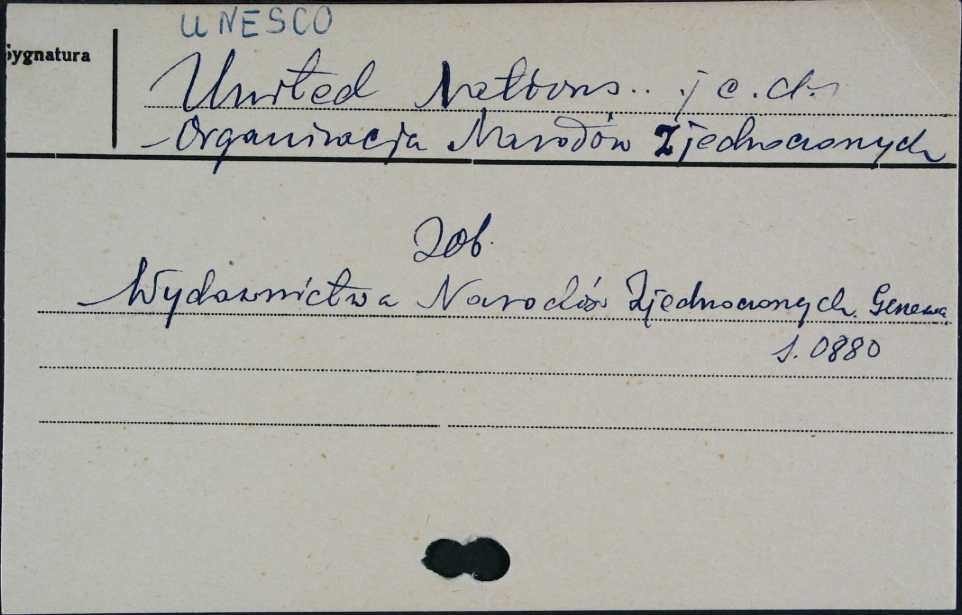 UNESCO
Sygnatura
United Nations... j c.d.
Organizacja Narodów Zjednoczonych
Zob.
Wydawnictwa Narodów Zjednoczonych. Genewa
s. 0880